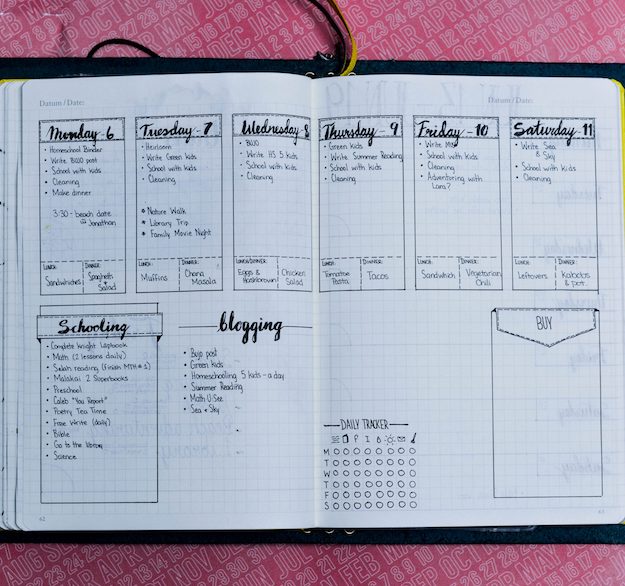 Datum / Date:
Datum / Date:
Monday - 6
• Homeschool Binder
• Write BUJO post
• School with kids
• Cleaning
• Make dinner
3:30 - beach date
w Jonathan
LUNCH:
DINNER:
Sandwiches
Spaghetti
+
Salad
Tuesday - 7
• Heirloom
• Write Green kids
• School with kids
• Cleaning
* Nature Walk
* Library Trip
* Family Movie Night
LUNCH:
DINNER:
Muffins
Chana
Masala
Wednesday - 8
• BUJO
• Write HS 5 kids
• School with kids
• Cleaning
LUNCH:
DINNER:
Eggs &
Hashbrown
Chicken
Salad
Thursday - 9
• Green kids
• Write Summer Reading
• School with kids
• Cleaning
LUNCH:
DINNER:
Tomatoe
Pasta
Tacos
Friday - 10
• Write
• School with kids
• Cleaning
• Adventuring with
Lara?
LUNCH:
DINNER:
Sandwich
Vegetarian
Chili
Saturday - 11
• Write Sea
& Sky
• School with kids
• Cleaning
LUNCH:
DINNER:
Leftovers
Kabobs
& pot.
Schooling
• Complete knight Lapbook
• Math (2 lessons daily)
• Selah reading (finish MTH # 1)
• Malakai 2 Superbooks
• Preschool
• Caleb "You Report"
• Poetry Tea Time
• Free Write (daily)
• Bible
• Go to the library
• Science
blogging
• Bujo post
• Green kids
• Homeschooling 5 kids - a day
• Summer Reading
• Math U-See
• Sea & Sky
DAILY TRACKER
P I
M
T
W
T
F
S
BUY
62